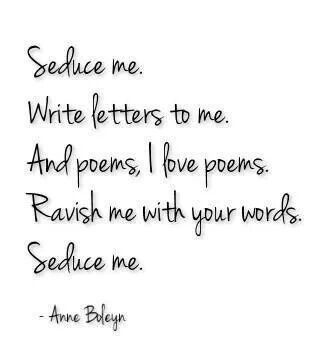 Seduce me.
Write letters to me.
And poems, I love poems.
Ravish me with your words.
Seduce me.
- Anne Boleyn